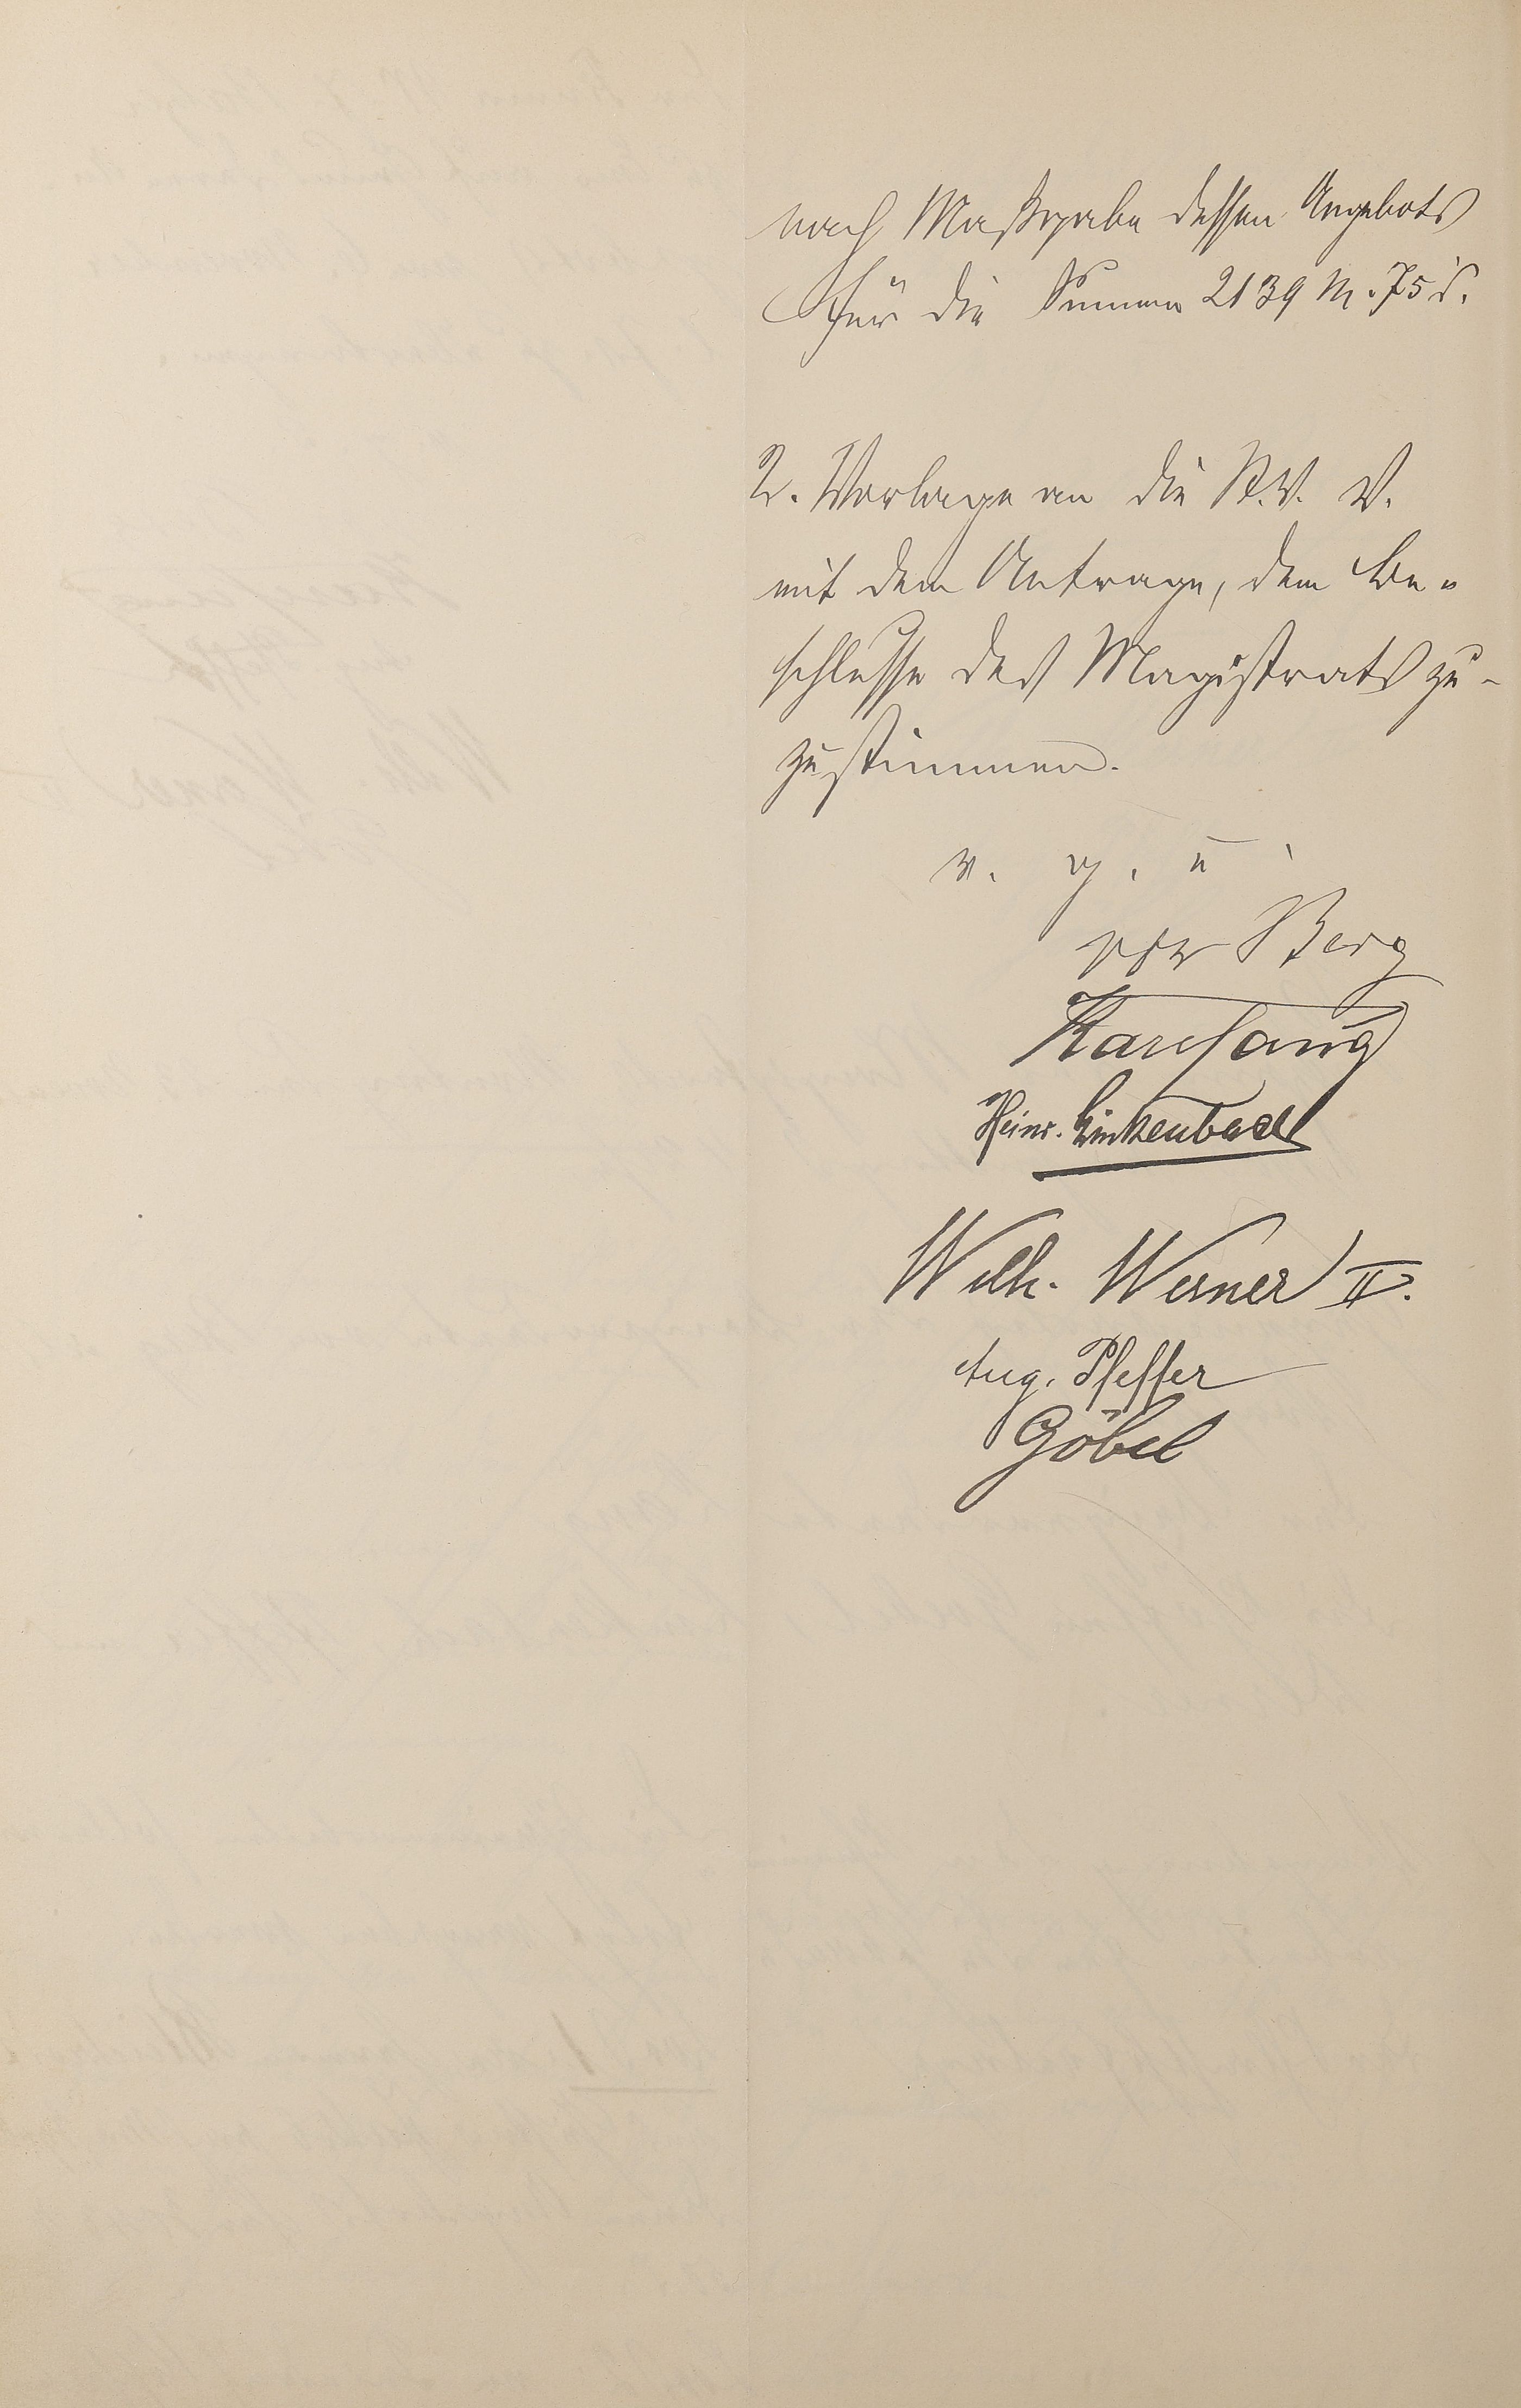 nach Maßgabe dessen Angebots
für die Summe 2139 M. 75 d.
2. Vorlage an die St. V. V.
mit dem Antrage, dem Be-
schlusse des Magistrats zu-
zustimmen.
v. g. u.
von Berg
Karl Lang
Heinr. Linkenbach
Wilh. Werner II.
Aug. Pfeffer
Göbel